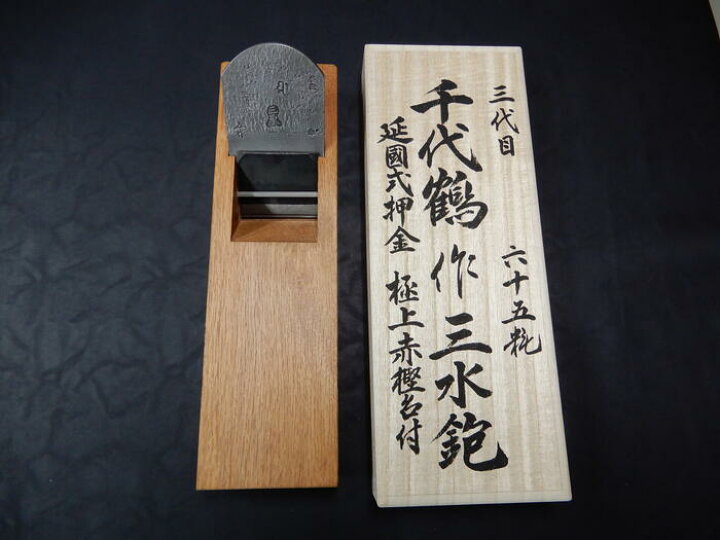 三代目 六十五粍
千代鶴作 三水鉋
延國式押金 極上赤樫台付